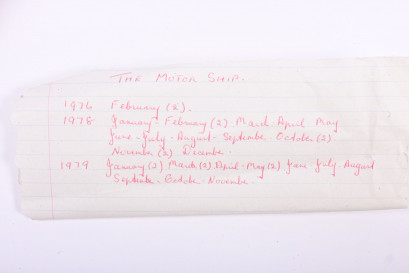 THE MOTOR SHIP.
1976 February (2).
1978 January - February (2) March - April May
June - July - August - September - October (2)
November (2) December -
1979 January (2) March (2) April - May (2) June - July August
September - October - November -